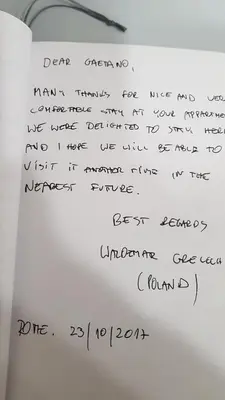 DEAR GAETANO,
MANY THANKS FOR NICE AND VERY
COMFORTABLE STAY AT YOUR APPARTME
WE WERE DELIGHTED TO STAY HERE
AND I HOPE WE WILL BE ABLE TO
VISIT IT ANOTHER TIME IN THE
NEAREST FUTURE.
BEST REGARDS
WALDEMAR GRELECH
(POLAND)
ROME. 23/10/2017